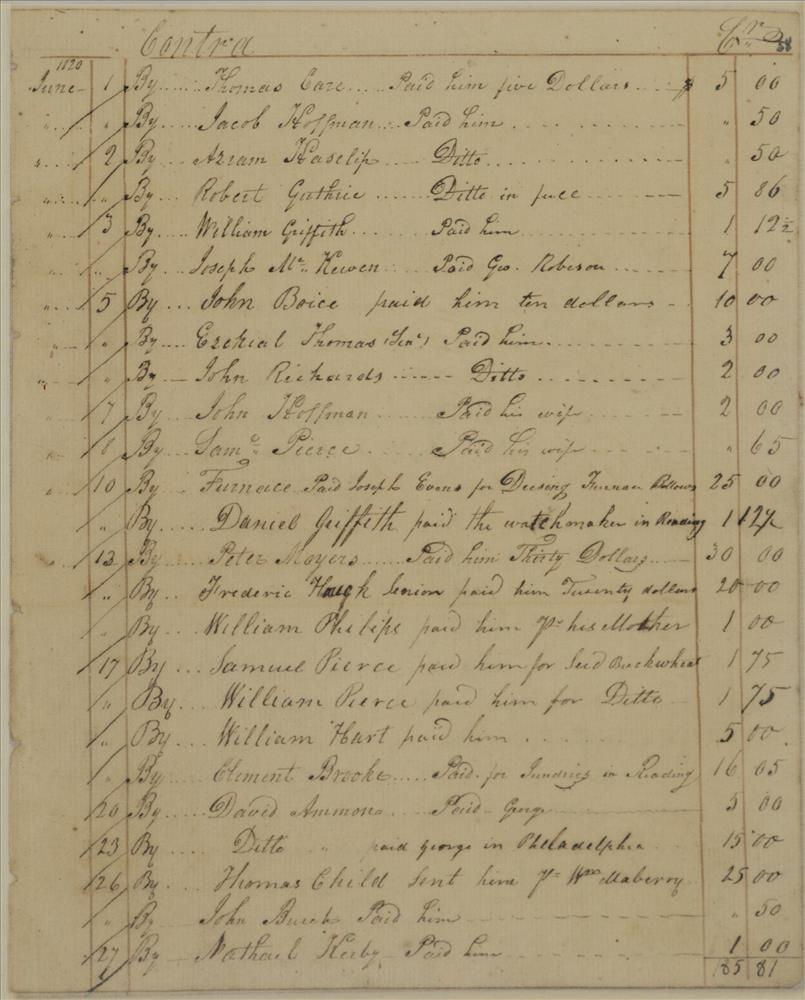 Contra Cr 58
1820
June 1 By Thomas Care Paid him five Dollars $ 5 00
" " By Jacob Hoffman Paid him " 50
" 2 By Azram Haslip Ditto " 50
" " By Robert Guthrie Ditto in full 5 86
" 3 By William Griffith Paid him 1 12½
" " By Joseph Mc Kewen Paid Geo. Roberson 7 00
" 5 By John Boice paid him ten dollars 10 00
" " By Ezekial Thomas (Senr) Paid him 3 00
" " By John Richards Ditto 2 00
" 7 By John Hoffman Paid his wife 2 00
" 8 By Saml Pierce Paid his wife " 65
" 10 By Furnace Paid Joseph Evans for Furnace Bellows 25 00
" By Daniel Griffith paid the watchmaker in Reading 1 12½
" 13 By Peter Moyers Paid him Thirty Dollars 30 00
" By Frederic Hauck Senior paid him Twenty dollars 20 00
" By William Philips paid him pr his Mother 1 00
17 By Samuel Pierce paid him for Seed Buckwheat 1 75
" By William Pierce paid him for Ditto 1 75
" By William Hart paid him 5 00
" By Clement Brooke Paid for Sundries in Reading 16 05
20 By David Ammons Paid George 5 00
23 By Ditto " paid george in Philadelphia 15 00
26 By Thomas Child Sent him pr Wm Maberry 25 00
" By John Burch Paid him " 50
27 By Nathael Kerby Paid him 1 00
185 81